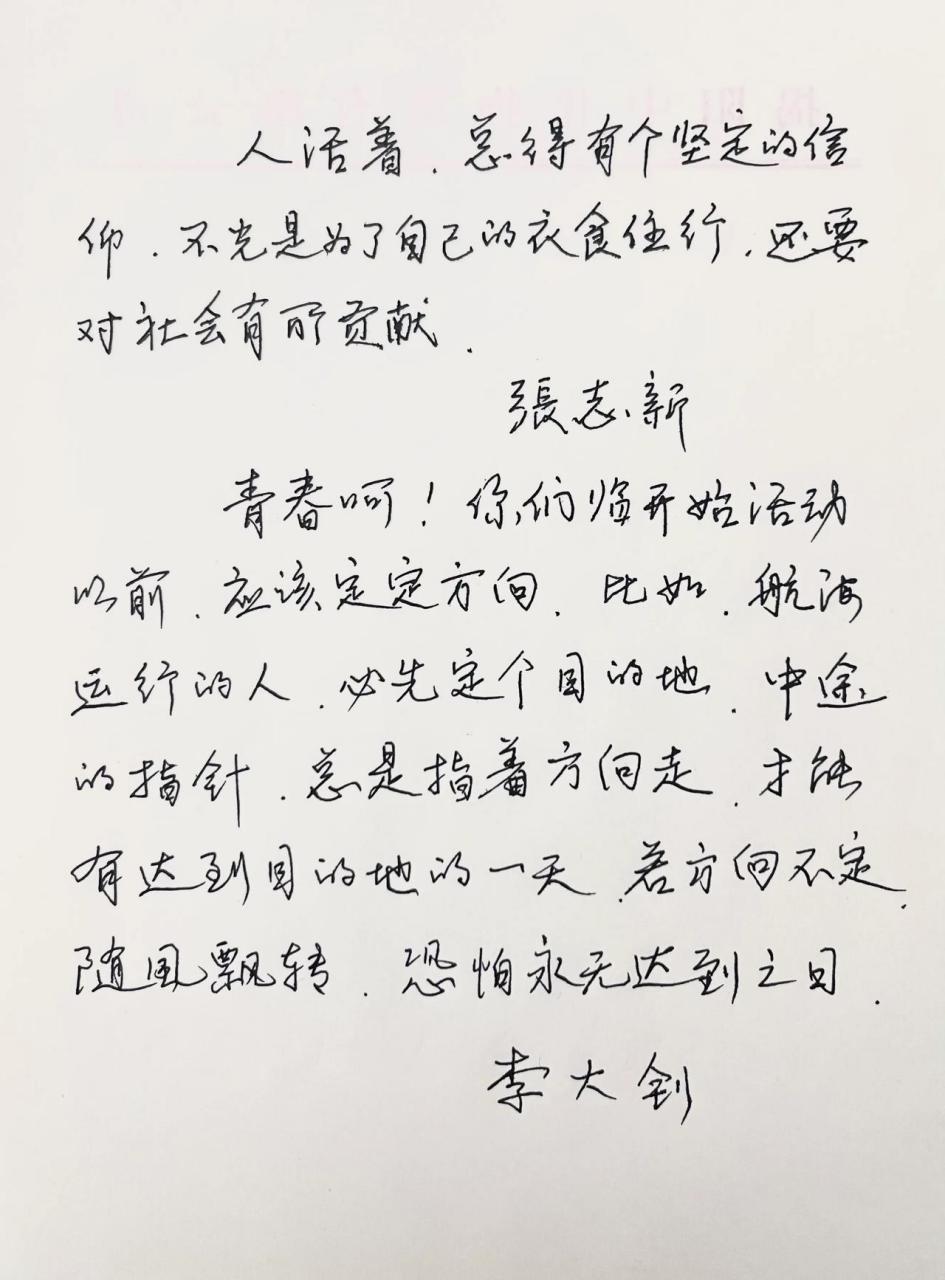 人活着.总得有个坚定的信
仰.不光是为了自己的衣食住行.还要
对社会有所贡献.
張志新
青春呵!你们临开始活动
以前.应该定定方向.比如.航海
运行的人.必先定个目的地.中途
的指针.总是指着方向走.才能
有达到目的地的一天.若方向不定.
随风飘转.恐怕永无达到之日.
李大钊